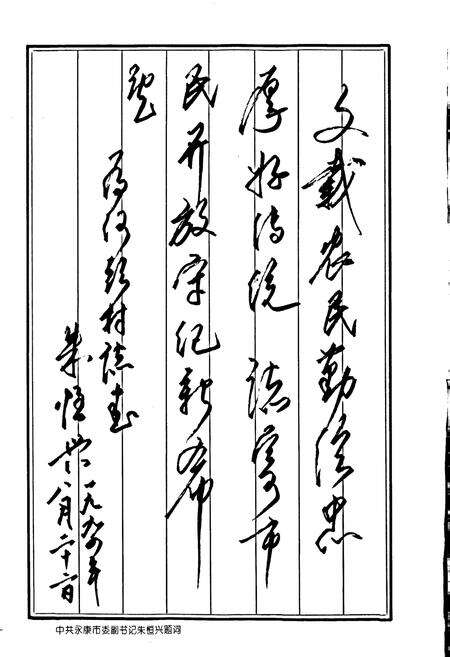 文载农民勤俭忠
厚好传统 志寄市
民开放守纪新希
望
为河头村志书
朱恒兴
一九九四年
八月二十二日
中共永康市委副书记朱恒兴题词